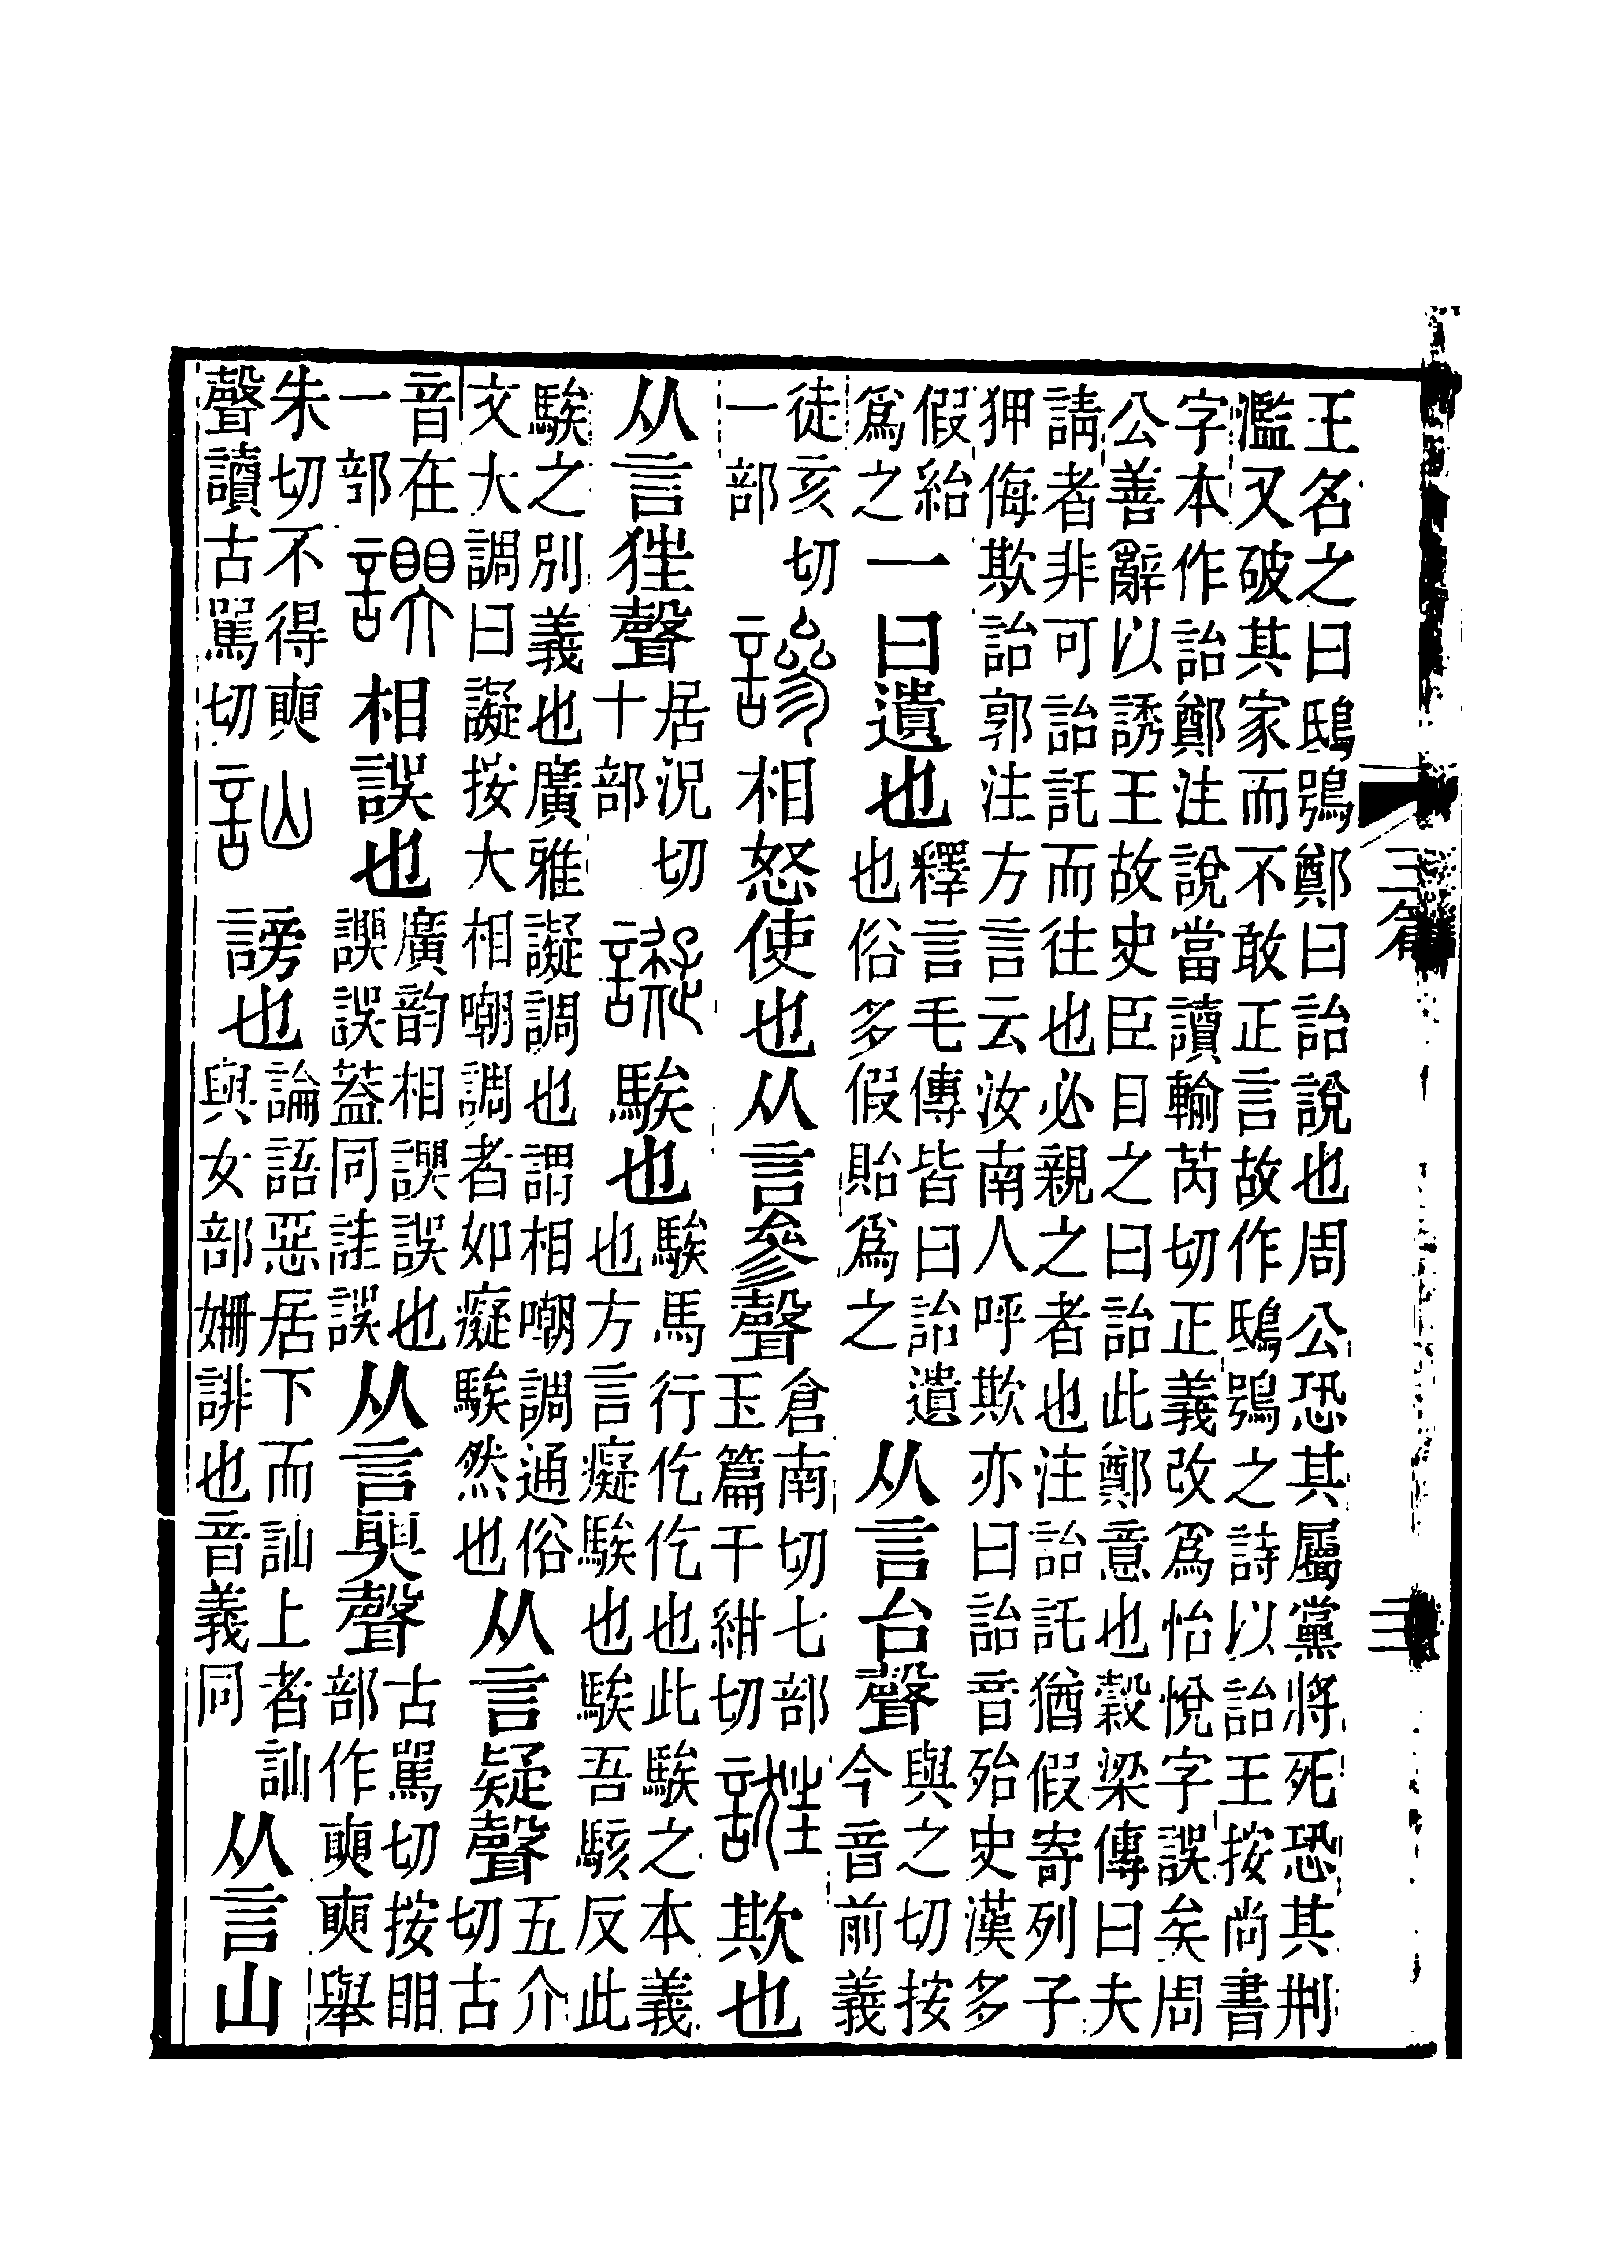 王名之曰鴟鴞鄭曰詒說也周公恐其屬黨將死恐其刑
濫又破其家而不敢正言故作鴟鴞之詩以詒王按尚書
字本作詒鄭注說當讀輸芮切正義改爲怡悅字誤矣周
公善辭以誘王故史臣目之曰詒此鄭意也穀梁傳曰夫
請者非可詒託而往也必親之者也注詒託猶假寄列子
狎侮欺詒郭注方言云汝南人呼欺亦曰詒音殆史漢多
假紿爲之一曰遺也釋言毛傳皆曰詒遺也俗多假貽爲之从言台聲與之切按今音前義
徒亥切一部謲相怒使也从言參聲倉南切七部玉篇千紺切誑欺也
从言狂聲居況切十部譺騃也騃馬行仡仡也此騃之本義也方言癡騃也騃吾駭反此
騃之別義也廣雅譺調也謂相嘲調通俗文大調曰譺按大相嘲調者如癡騃然也从言疑聲五介切古
音在一部䜁相誤也廣韵相䜁誤也䜁誤葢同詿誤从言𡙇聲古罵切按䀠部作𡙇𡙇舉
朱切不得𡙇聲讀古罵切訕謗也論語惡居下而訕上者訕與女部姍誹也音義同从言山
三篇
三